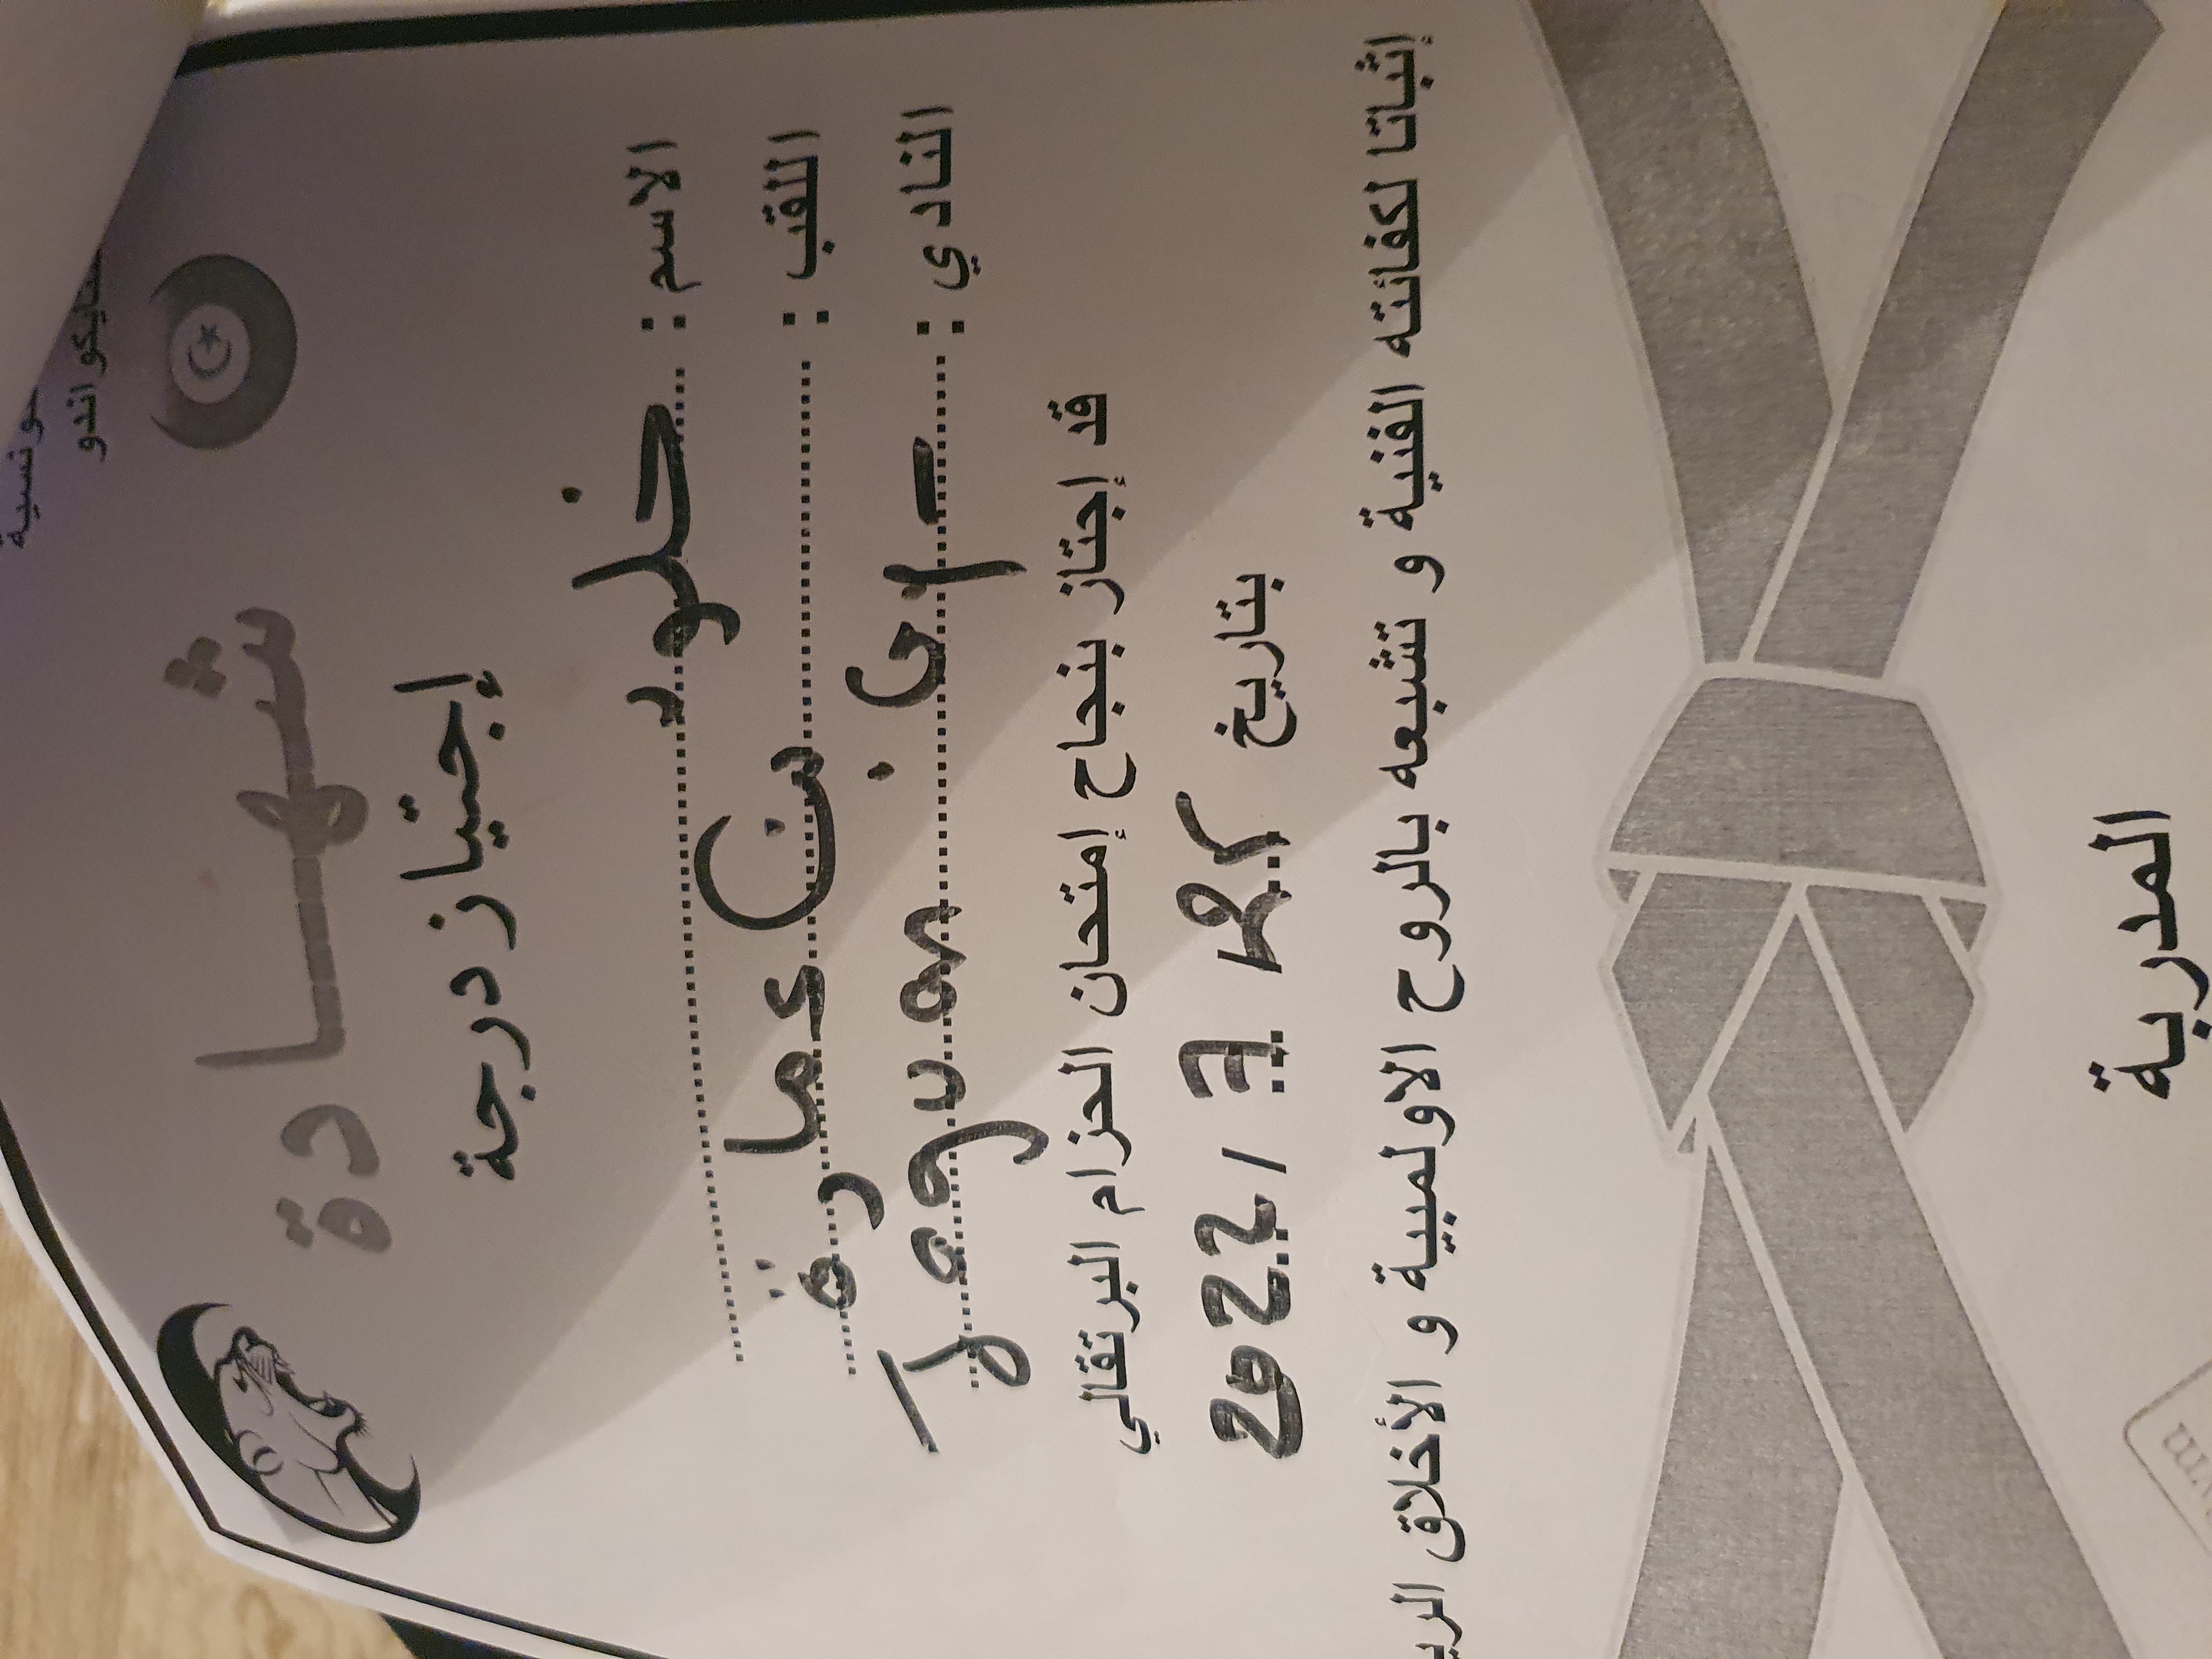 تايكواندو
شهادة
إجتياز درجة
الاسم : خلود
اللقب : بن عمارة
النادي :
قد إجتاز بنجاح إمتحان الحزام البرتقالي
بتاريخ 2022 / 7 /
إثباتا لكفائته الفنية و تشبعه بالروح الاولمبية و الأخلاق
المدربة